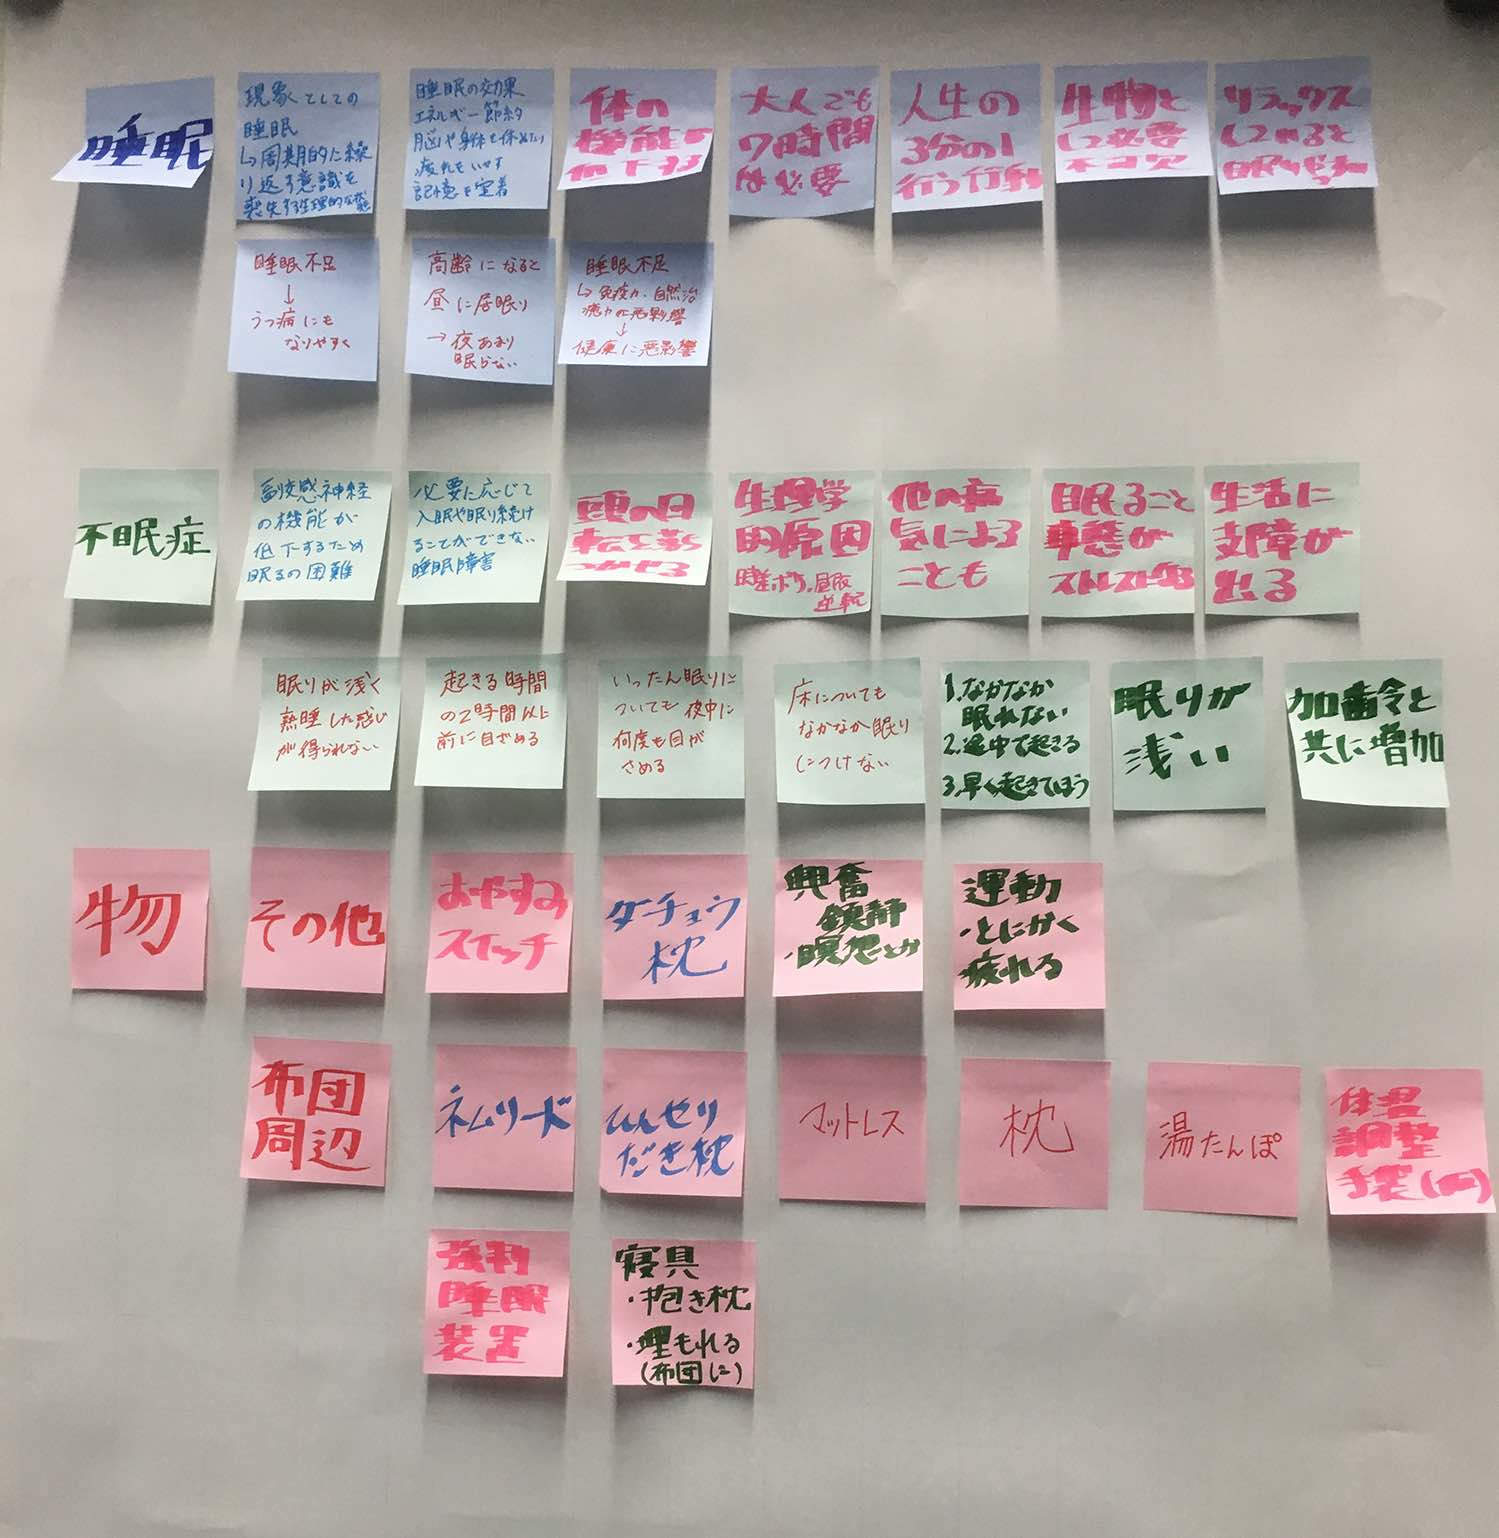 睡眠
現象としての
睡眠
↳周期的に繰
り返す意識を
喪失する生理的な状態
睡眠の効果
エネルギー節約
脳や身体を休めたり
疲れをいやす
記憶を定着
体の
機能が
低下する
大人でも
7時間
は必要
人生の
3分の1
行う行動
生物と
して必要
不可欠
リラックス
してねると
眠りが
睡眠不足
↓
うつ病にも
なりやすく
高齢になると
昼に居眠り
→夜あまり
眠らない
睡眠不足
↳免疫力、自然治
癒力に悪影響
↓
健康に悪影響
不眠症
副交感神経
の機能が
低下するため
眠るの困難
必要に応じて
入眠や眠り続け
ることができない
睡眠障害
頭の回
転を鈍ら
つかせる
生理学
的原因
時差ボケ、昼夜
逆転
他の病
気による
ことも
眠ること
事態が
ストレスになる
生活に
支障が
出る
眠りが浅く
熟睡した感じ
が得られない
起きる時間
の2時間以上
前に目ざめる
いったん眠りに
ついても夜中に
何度も目が
さめる
床についても
なかなか眠り
につけない
1.なかなか
眠れない
2.途中で起きる
3.早く起きてしまう
眠りが
浅い
加齢と
共に増加
物
その他
おやすみ
スイッチ
ダチョウ
枕
興奮
鎮静
・瞑想とか
運動
・とにかく
疲れる
布団
周辺
ネムリード
ひんやり
だき枕
マットレス
枕
湯たんぽ
体温
調整
手袋(
強制
睡眠
装置
寝具
・抱き枕
・埋もれる
(布団に)